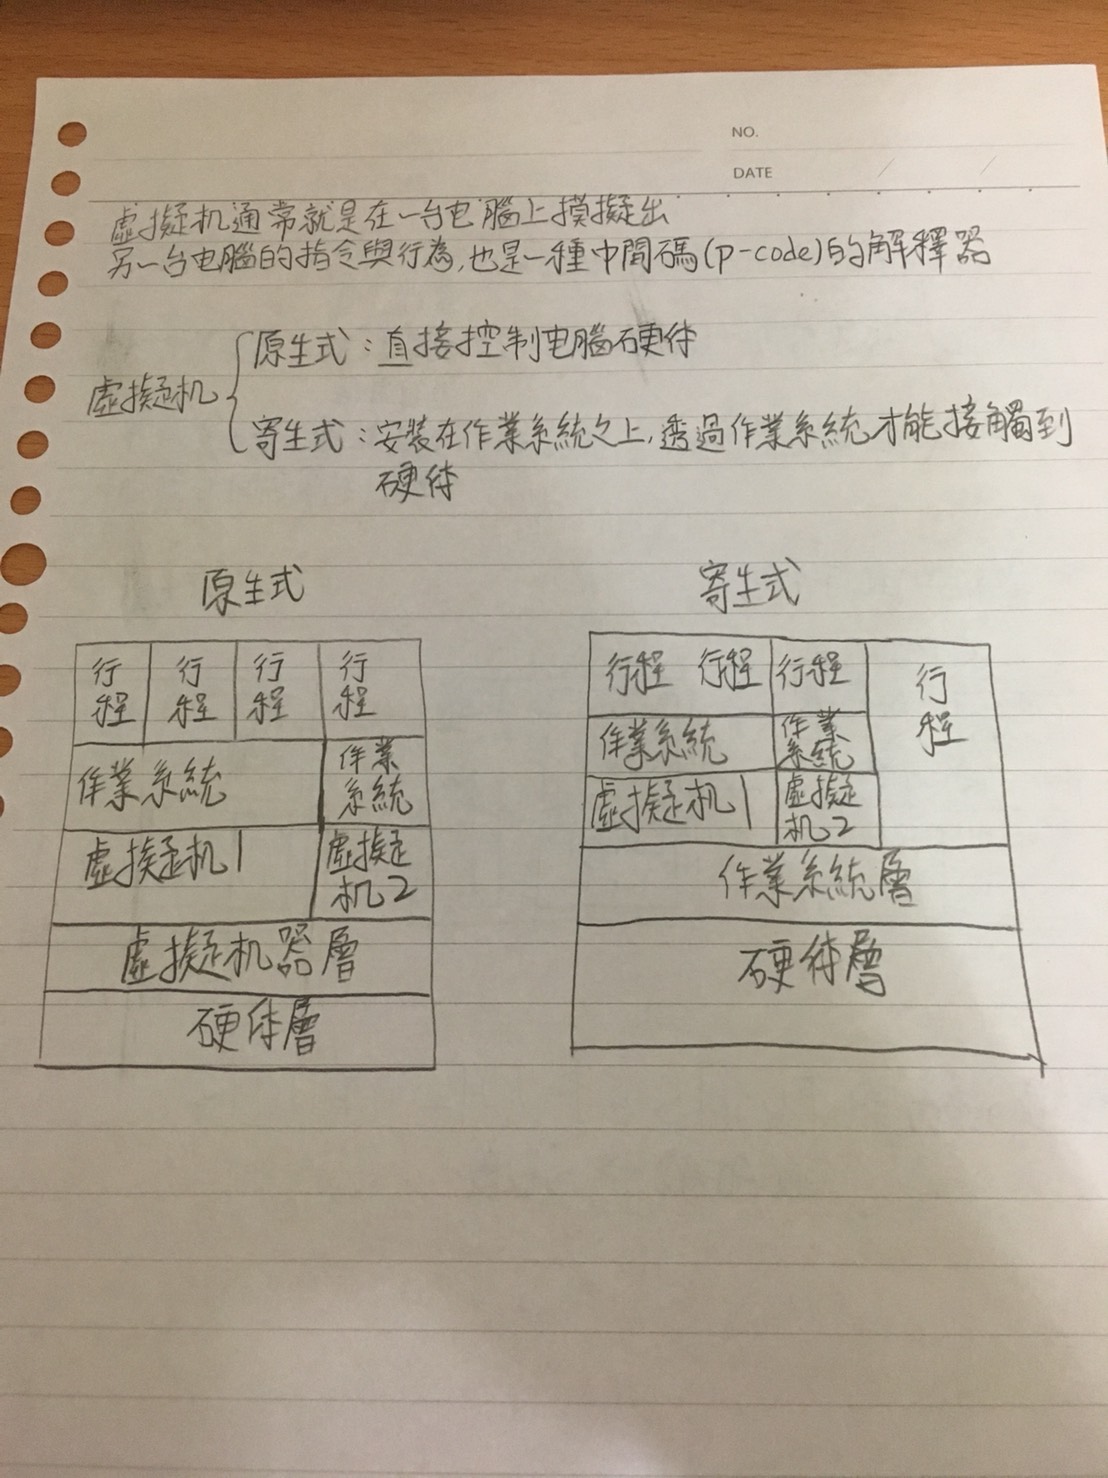 NO.
DATE
虛擬机通常就是在一台电腦上摸擬出
另一台电腦的指令與行為,也是一種中間碼(p-code)的解釋器
原生式:直接控制电腦硬体
虛擬机
寄生式:安裝在作業系統之上,透過作業系統才能接觸到
硬体
原生式
行程 行程 行程 行程
作業系統 作業系統
虛擬机1 虛擬机2
虛擬机器層
硬体層
寄生式
行程 行程 行程 行程
作業系統 作業系統
虛擬机1 虛擬机2
作業系統層
硬体層